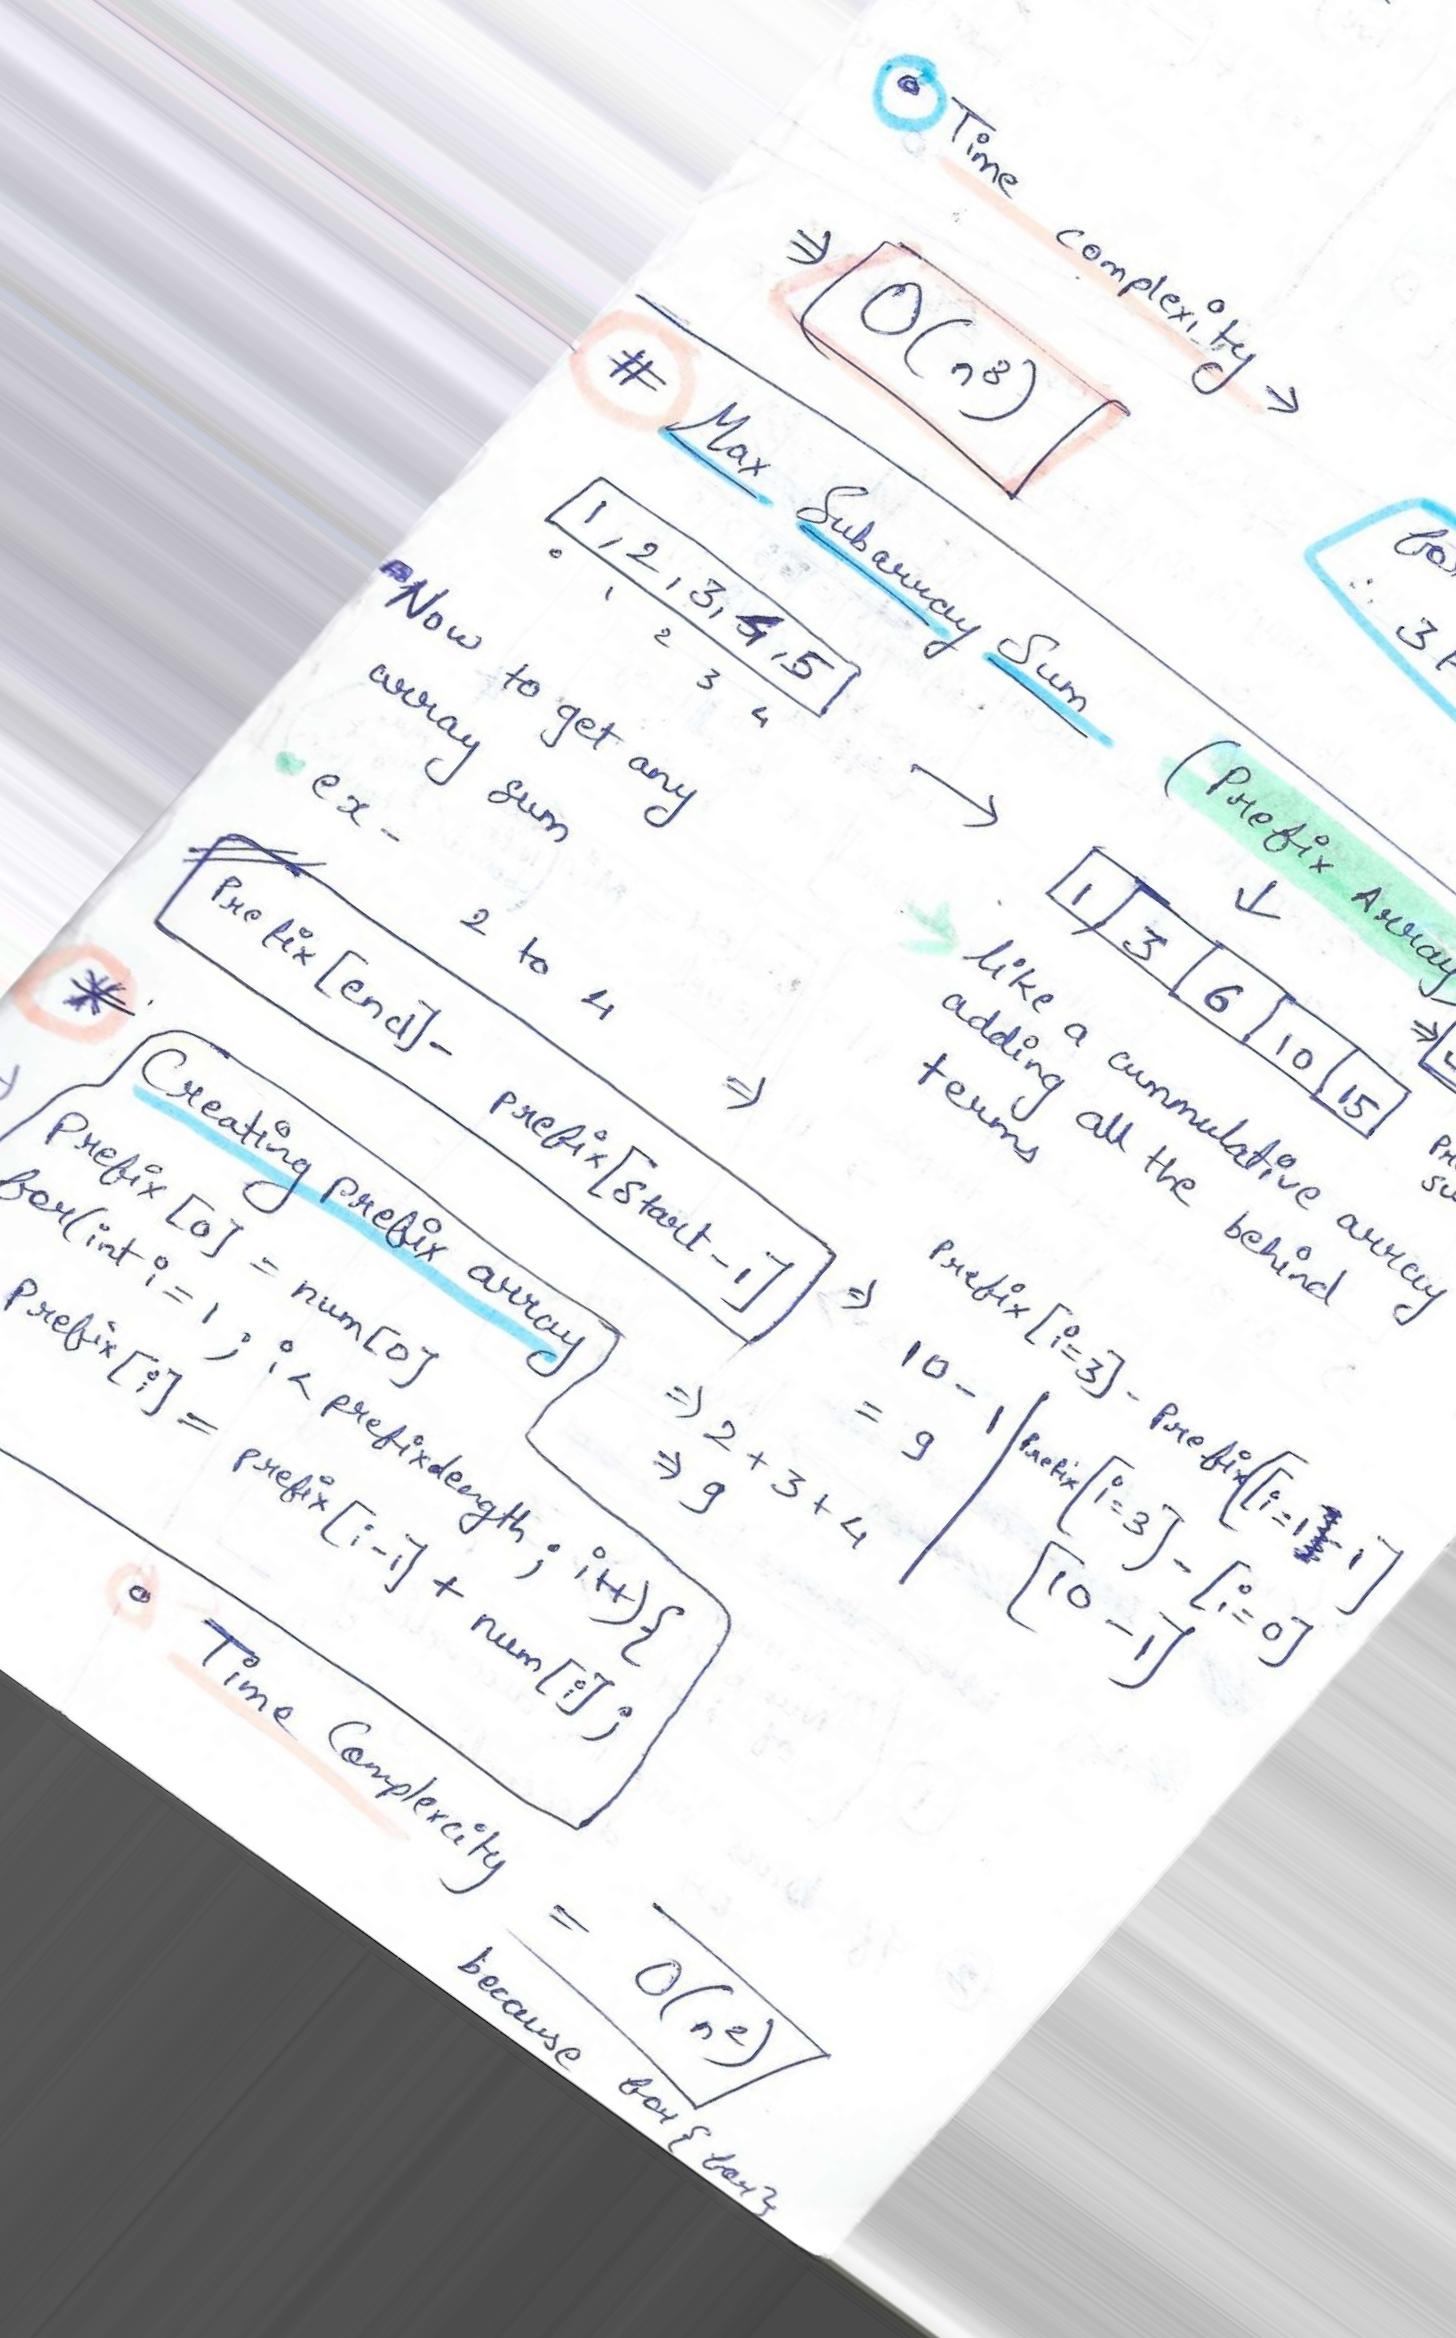 Time complexity →
⇒ O(n³)
# Max Subarray Sum (Prefix Array)
1, 2, 3, 4, 5
0 1 2 3 4
→
1 | 3 | 6 | 10 | 15
Now to get any
array sum
like a cummulative array
adding all the behind
terms
ex -
2 to 4
Prefix[end] - prefix[start-1]
⇒ Prefix[i=3] - Prefix[i=1-1]
⇒ 10 - 1
= 9
Prefix[i=3] - [i=0]
[10 - 1]
⇒ 2 + 3 + 4
⇒ 9
* Creating prefix array
Prefix[0] = num[0]
for(int i = 1; i < prefix.length; i++){
Prefix[i] = prefix[i-1] + num[i];
Time Complexcity
= O(n²)
because for{for}